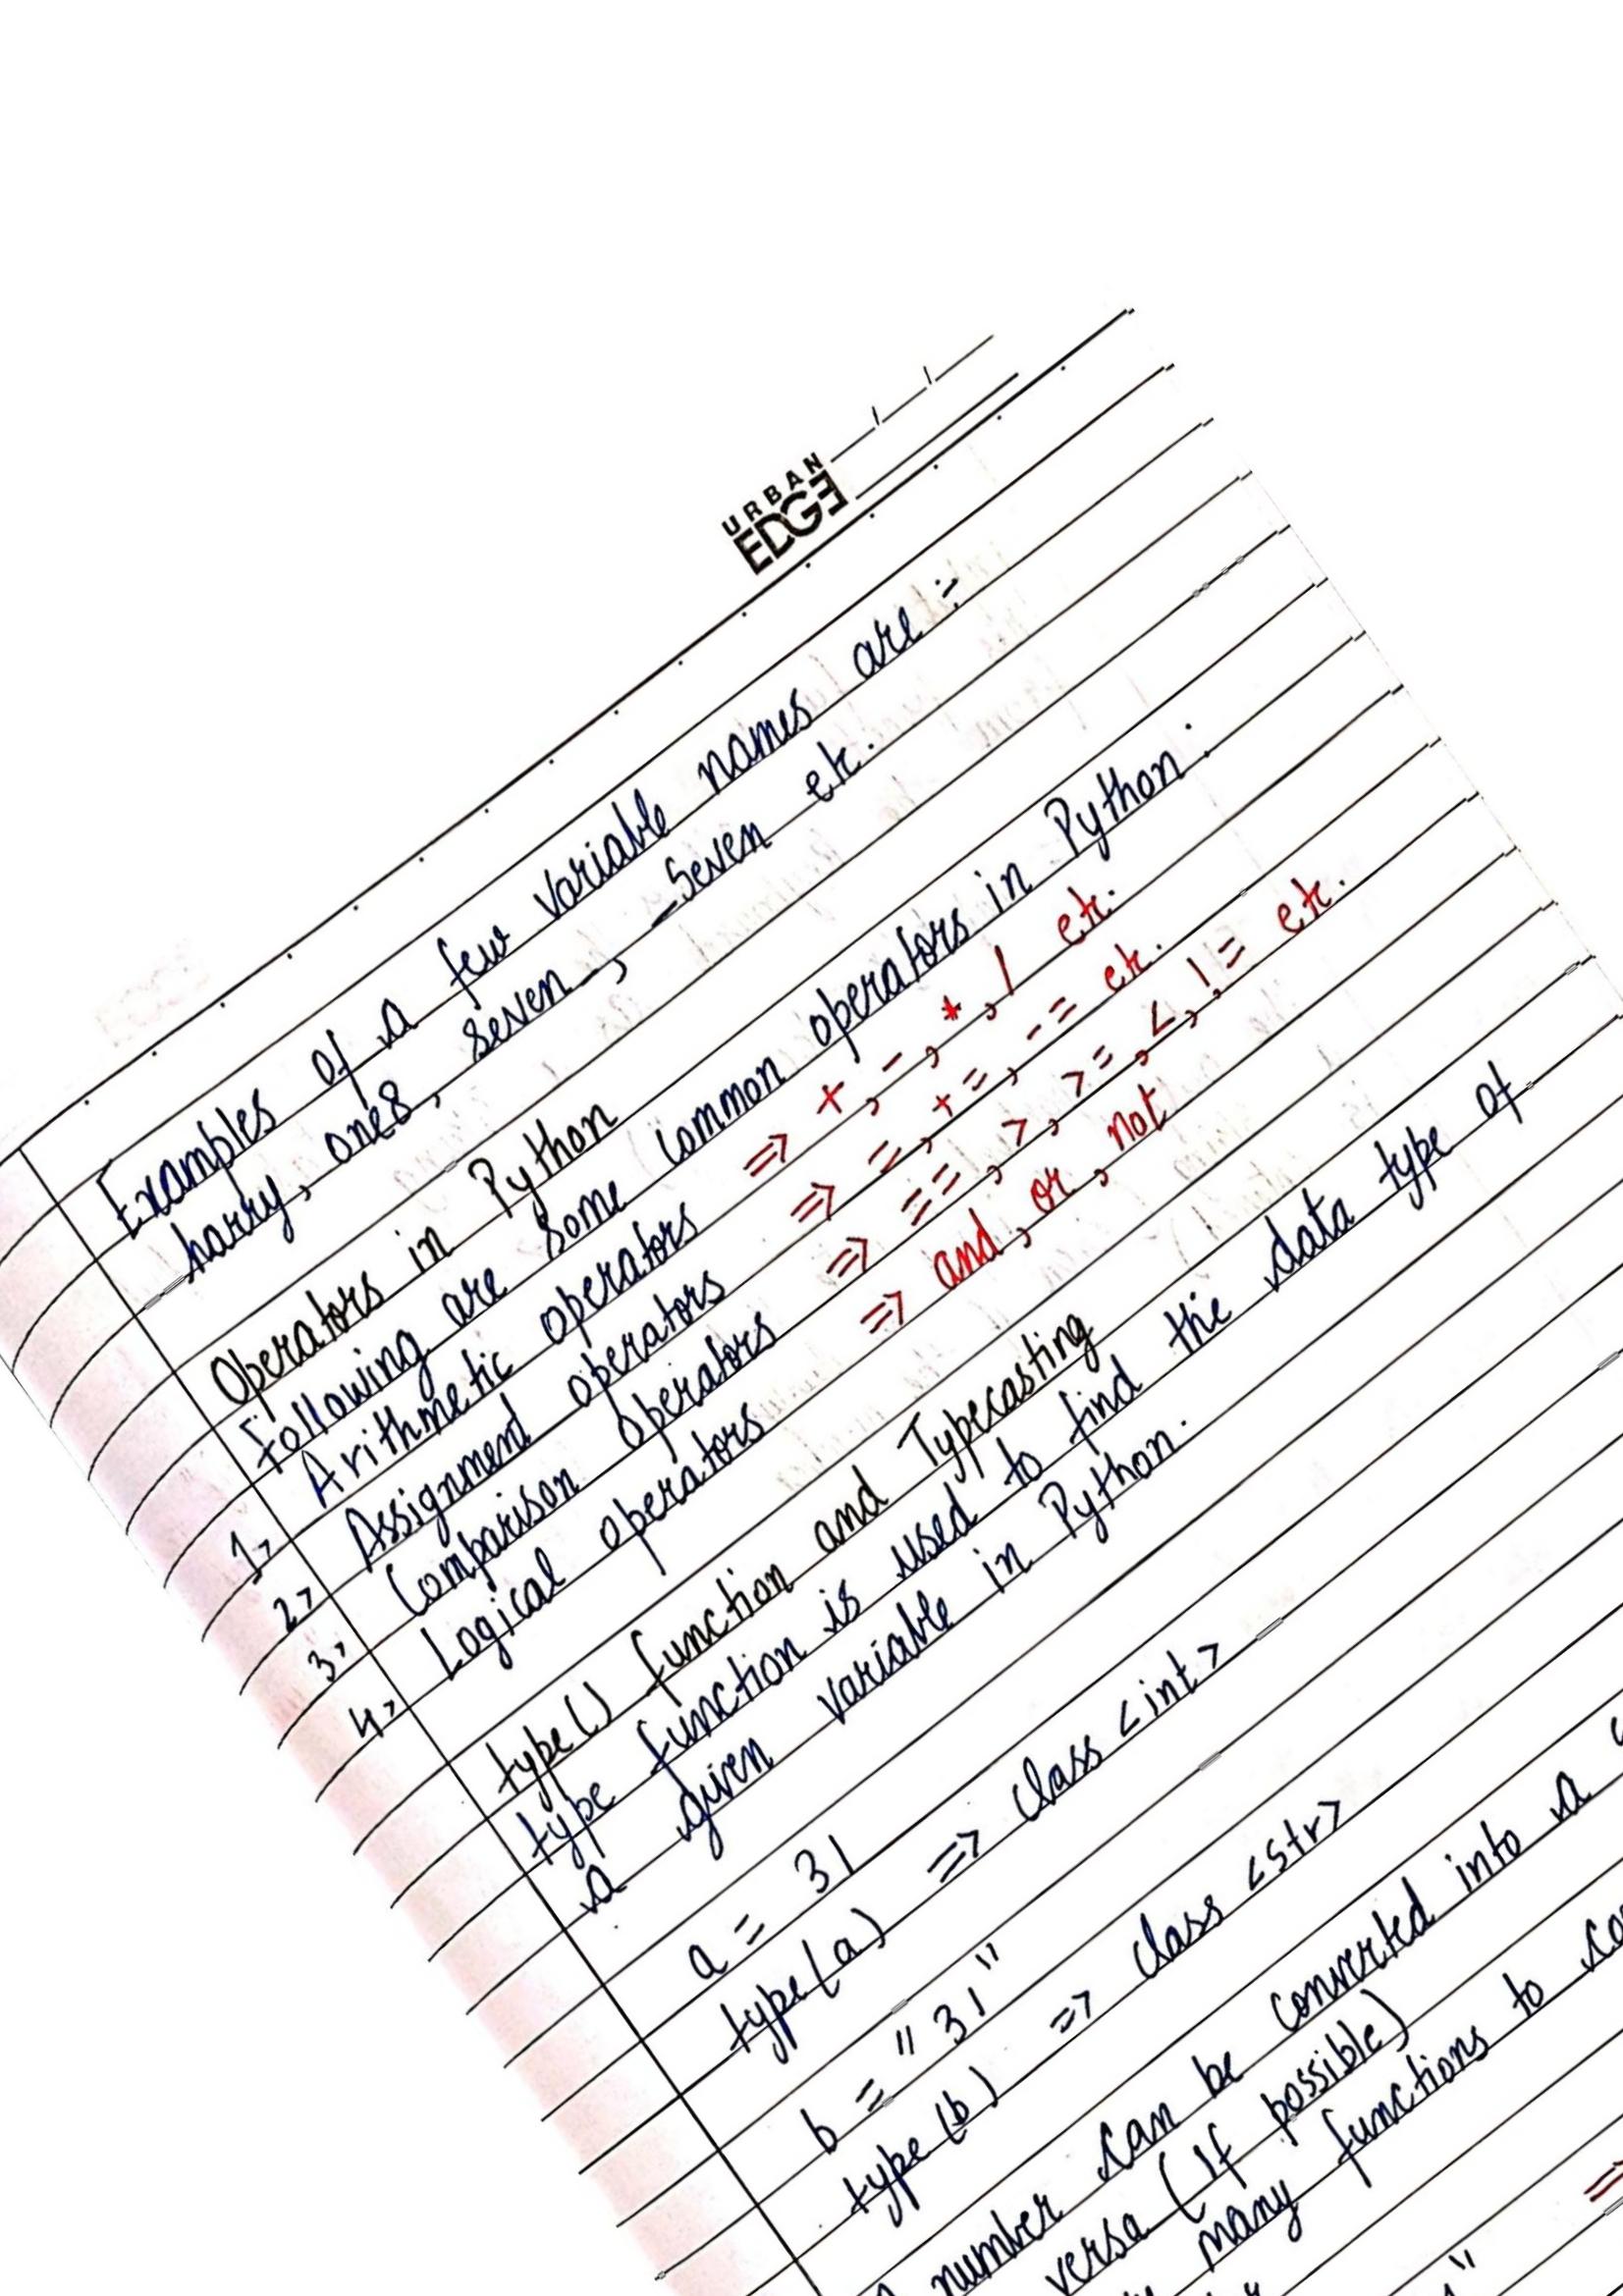 URBAN
EDGE
Examples of a few variable names are :-
harry, one8, seven_, _seven etc.
Operators in Python
Following are some common operators in Python :
1> Arithmetic operators => +, -, *, / etc.
2> Assignment operators => =, +=, -= etc.
3> Comparison operators => ==, >, >=, <, != etc.
4> Logical operators => and, or, not
type() function and Typecasting
type function is used to find the data type of
a given variable in Python.
a = 31
type(a) => class <int>
b = "31"
type(b) => class <str>
number can be converted into a
versa (if possible)
many functions to
=>